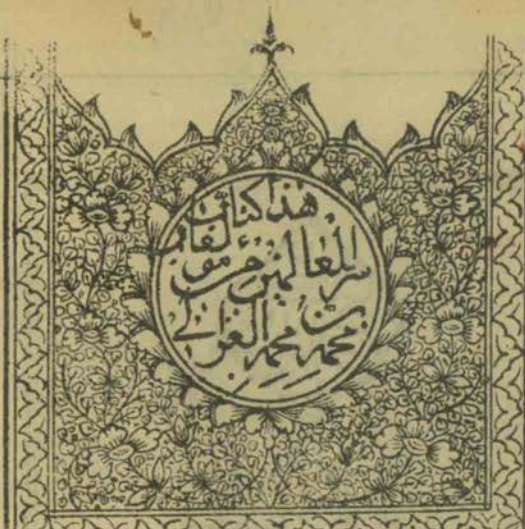 هذا كتاب
سر العالمين من مؤلفات
محمد بن محمد الغزالي